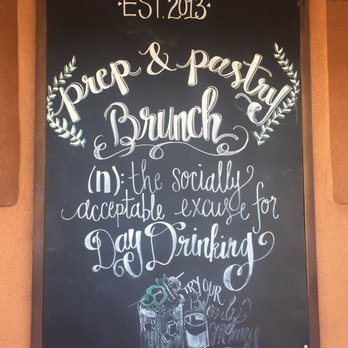 EST. 2013
prep & pastry
Brunch
(n): the socially
acceptable excuse for
Day Drinking
TRY OUR